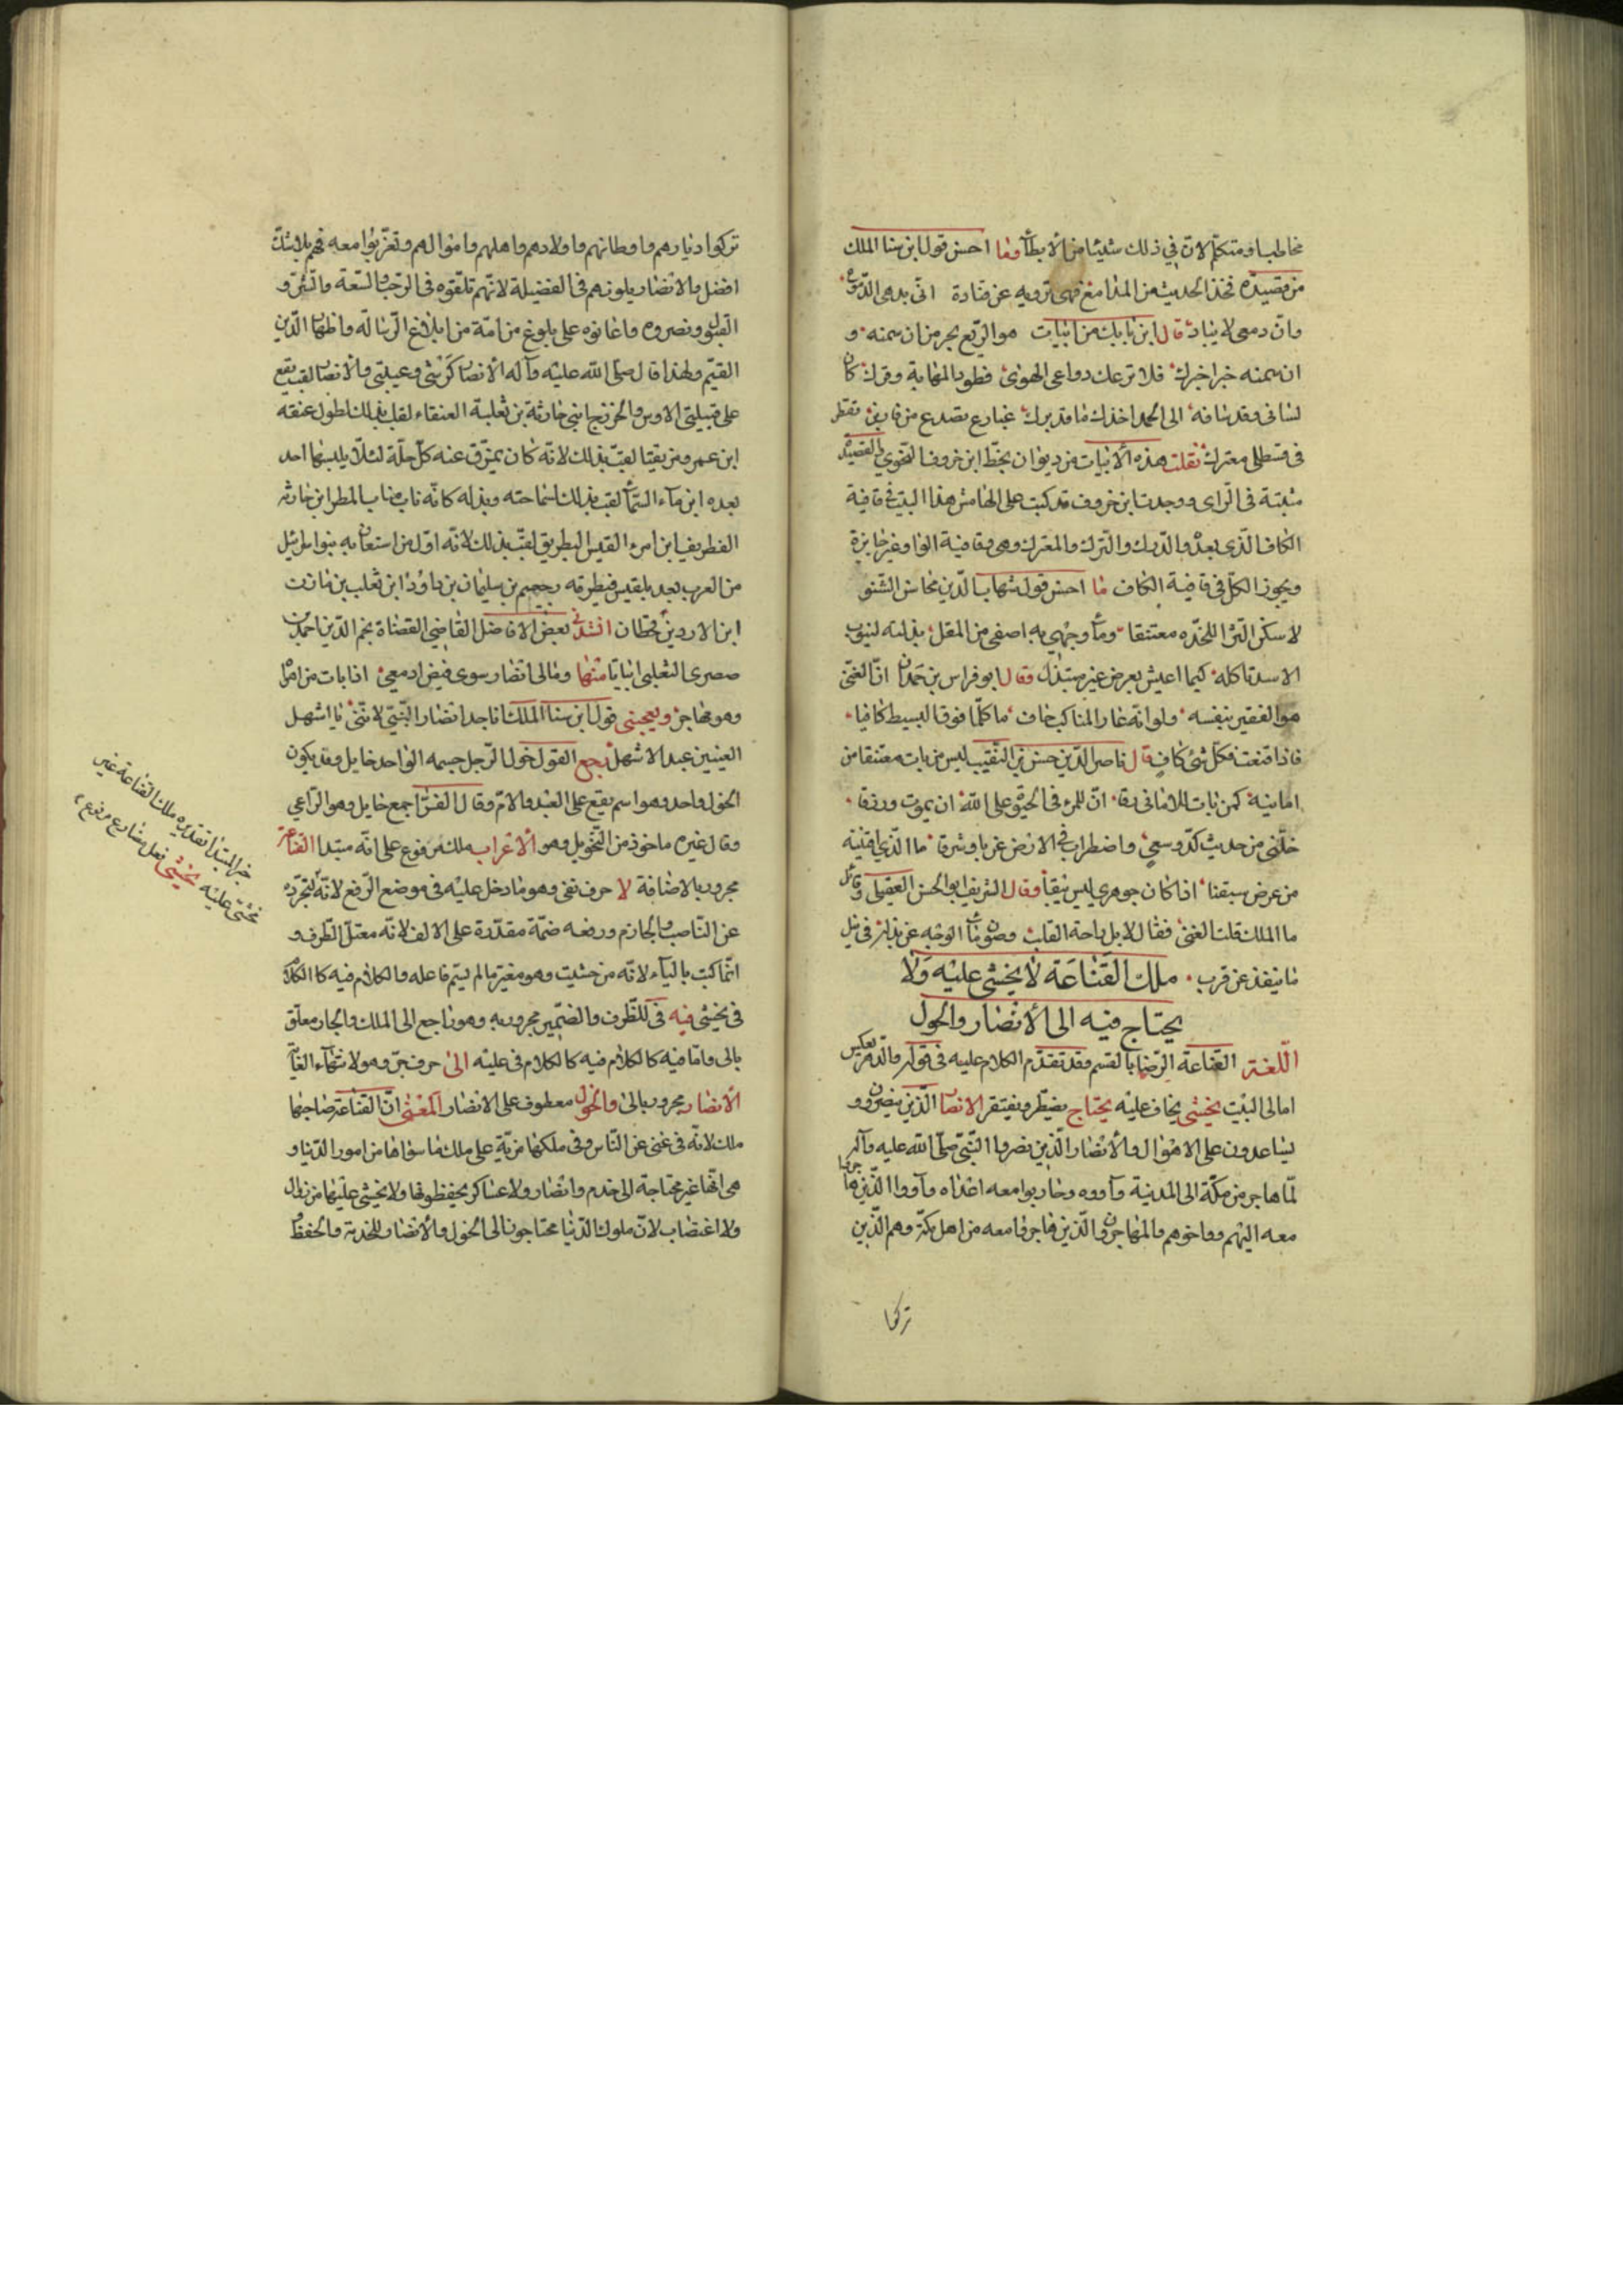 مخاطبا ومتكلّم لانّ في ذلك شيئا من الأبطأ وما احسن قول ابن سنا الملك
من قصيدة فخذ الحديث من المدامع فهى ترويه عن قتادة انّى بدمى
وانّ دمعى لا يباد قال ابن بابك من ابيات هو الرّبع بحر من ان سمنه و
ان سمنه خبرا خبرك فلا ترعك دواعى الهوى فطود المهابة
لسانى وقد شافه الى الحمد اخذك ما قد يرك
فى قسطلى معترك نقلت هذه الأبيات من ديوان بخطّ ابن خروف النحوي والقصيدة
مثبتة فى الرّاى ووجدت ابن خروف قد كتب على الهامش هذا البيت في قافية
الكاف الّذى بعدُ والدّيك والترك والمعترك وهى وقافية الواو غير جايزة
ويجوز الكلّ فى قافية الكاف ما احسن قول شهاب الدّين محاسن الشّوّا
لا سكن الثّرا للخدّه معتنقا وماء وجهى به اصفى من المقل
الاسدتا كله كيما اعيش بعرض غير مبتذل وقال ابو فراس بن حمدان انّ الغنىّ
هو الفقير بنفسه ولو انّه عار المناكب حاف ما كلّما فوق البسيط كافيا
فاذا قنعت فكلّ شئ كاف قال ناصر الدّين حسن بن النّقيب ليس من بات معتنقا من
امانيه كمن بات للامانى رقا انّ للمرء فى الحيوة على اللّه ان يموت ورزقا
خلّنى من حديث كدّ وسعي واضطراب فى الارض غربا وشرقا ما الّذي اقتنيه
من عرض سيفنا اذا كان جوهرى ليس يبقا وقال الشريف ابو الحسن العقيلى وقائل
ما الملك قلت الغنى فقال لا بل راحة القلب وصون ماء الوجه عن بذله فى نيل
ما ينفذ عن قرب ملك القَناعَة لا يخشى عليْه وَلا
يحتاج فيه الى الأنصار والخول
اللّغة القناعة الرّضا بالقسم وقد تقدّم الكلام عليه فى قوله والدّهر يعكس
امالى البيت يخشى يخاف عليْه يحتاج يضطّر ويفتقر الانصار الّذين ينصرون و
يساعدون على الاهوال والأنصار الّذين نصروا النّبىّ صلّى اللّه عليه وآله
لمّا هاجر من مكّة الى المدينة وآووه وحاربوا معه اعداه وآووا الّذين هاجروا
معه اليهم وواخوهم والمهاجرون الّذين هاجروا معه من اهل مكّة وهم الّذين
تركوا
تركوا ديارهم واوطانهم واولادهم واهلهم واموالهم وتغرّبوا معه فهم بلا شكّ
افضل والانصار يلونهم فى الفضيلة لانّهم تلقّوه فى الرّحب والسّعة والبشر و
القبول ونصروه واعانوه على بلوغ مرامه من ابلاغ الرّسالة واظهار الدّين
القيّم ولهذا قال صلّى اللّه عليْه وآله الأنصار كرشى وعيبتى والأنصار لقب يقع
على قبيلتى الاوس والخزرج ابنى حارثة بن ثعلبة العنقاء لقب بذلك لطول عنقه
ابن عمرو مزيقيا لقّب بذلك لانّه كان يمزّق عنه كلّ حلّة لئلّا يلبسها احد
بعده ابن ماء السّماء لقّب بذلك لسماحته وبذله كانّه ناب مناب المطر ابن حارثه
الغطريف ابن امرئ القيس البطريق لقّب بذلك لانّه اوّل من استعان به بنو اسرائيل
من العرب بعد بلقيس فبطرقه رحبعم بن سليمان بن داوُد ابن ثعلب بن مازن
ابن الازد بن قحطان انشدنى بعض الافاضل القاضي القضاة نجم الدّين احمد بن
صصرى الثعلبى ابياتا منها ومالى انصار سوى فيض ادمعي اذا بات من اهواه
وهو مهاجر ويعجبنى قول ابن سنا الملك اناجد انصار النّبىّ لانّنى يا اشهل
العينين عبد الاشهل نجع القول خول الرّجل حشمه الواحد خايل وقد يكون
الخول واحد وهو اسم يقع على العبد والامّة وقال الفرّا جمع خايل وهو الرّاعي
وقال غيره ماخوذ من التّخويل وهو الأعراب ملك مرفوع على انّه مبتدا القناعة
مجرور بالاضافة لا حرف نفى وهو ما دخل عليْه فى موضع الرّفع لانّه لتجرّده
عن النّاصب والجازم ورفعه ضمّة مقدّرة على الالف لانّه معتلّ الطّرف و
انّما كتب بالياء لانّه من خشيت وهو مغيّر ما لم يسمّ فاعله والكلام فيه كا الكلام
فى يخشى فيه فى للظّرف والضّمير مجرور به وهو راجع الى الملك والجار معلّق
بالى وامّا فيه كالكلام فيه كالكلام فى عليْه الى حرف جرّ وهو لانتهاء الغاية
الأنصار مجرور بالى والخول معطوف على الانصار المعنى انّ القناعة صاحبها
ملك لانّه فى غنى عن النّاس وفى ملكها مزيّة على ملك ما سواها من امور الدّنيا و
هى انّها غير محتاجة الى خدم وانصار ولا عساكر يحفظونها ولا يخشى عليْها من زوال
ولا اغتصاب لانّ ملوك الدّنيا محتاجون الى الخول والأنصار للخدمة والحفظ
خبر المبتدا تقديره ملك القناعة غير
مخشى عليْه يخشى فعل مضارع مرفوع